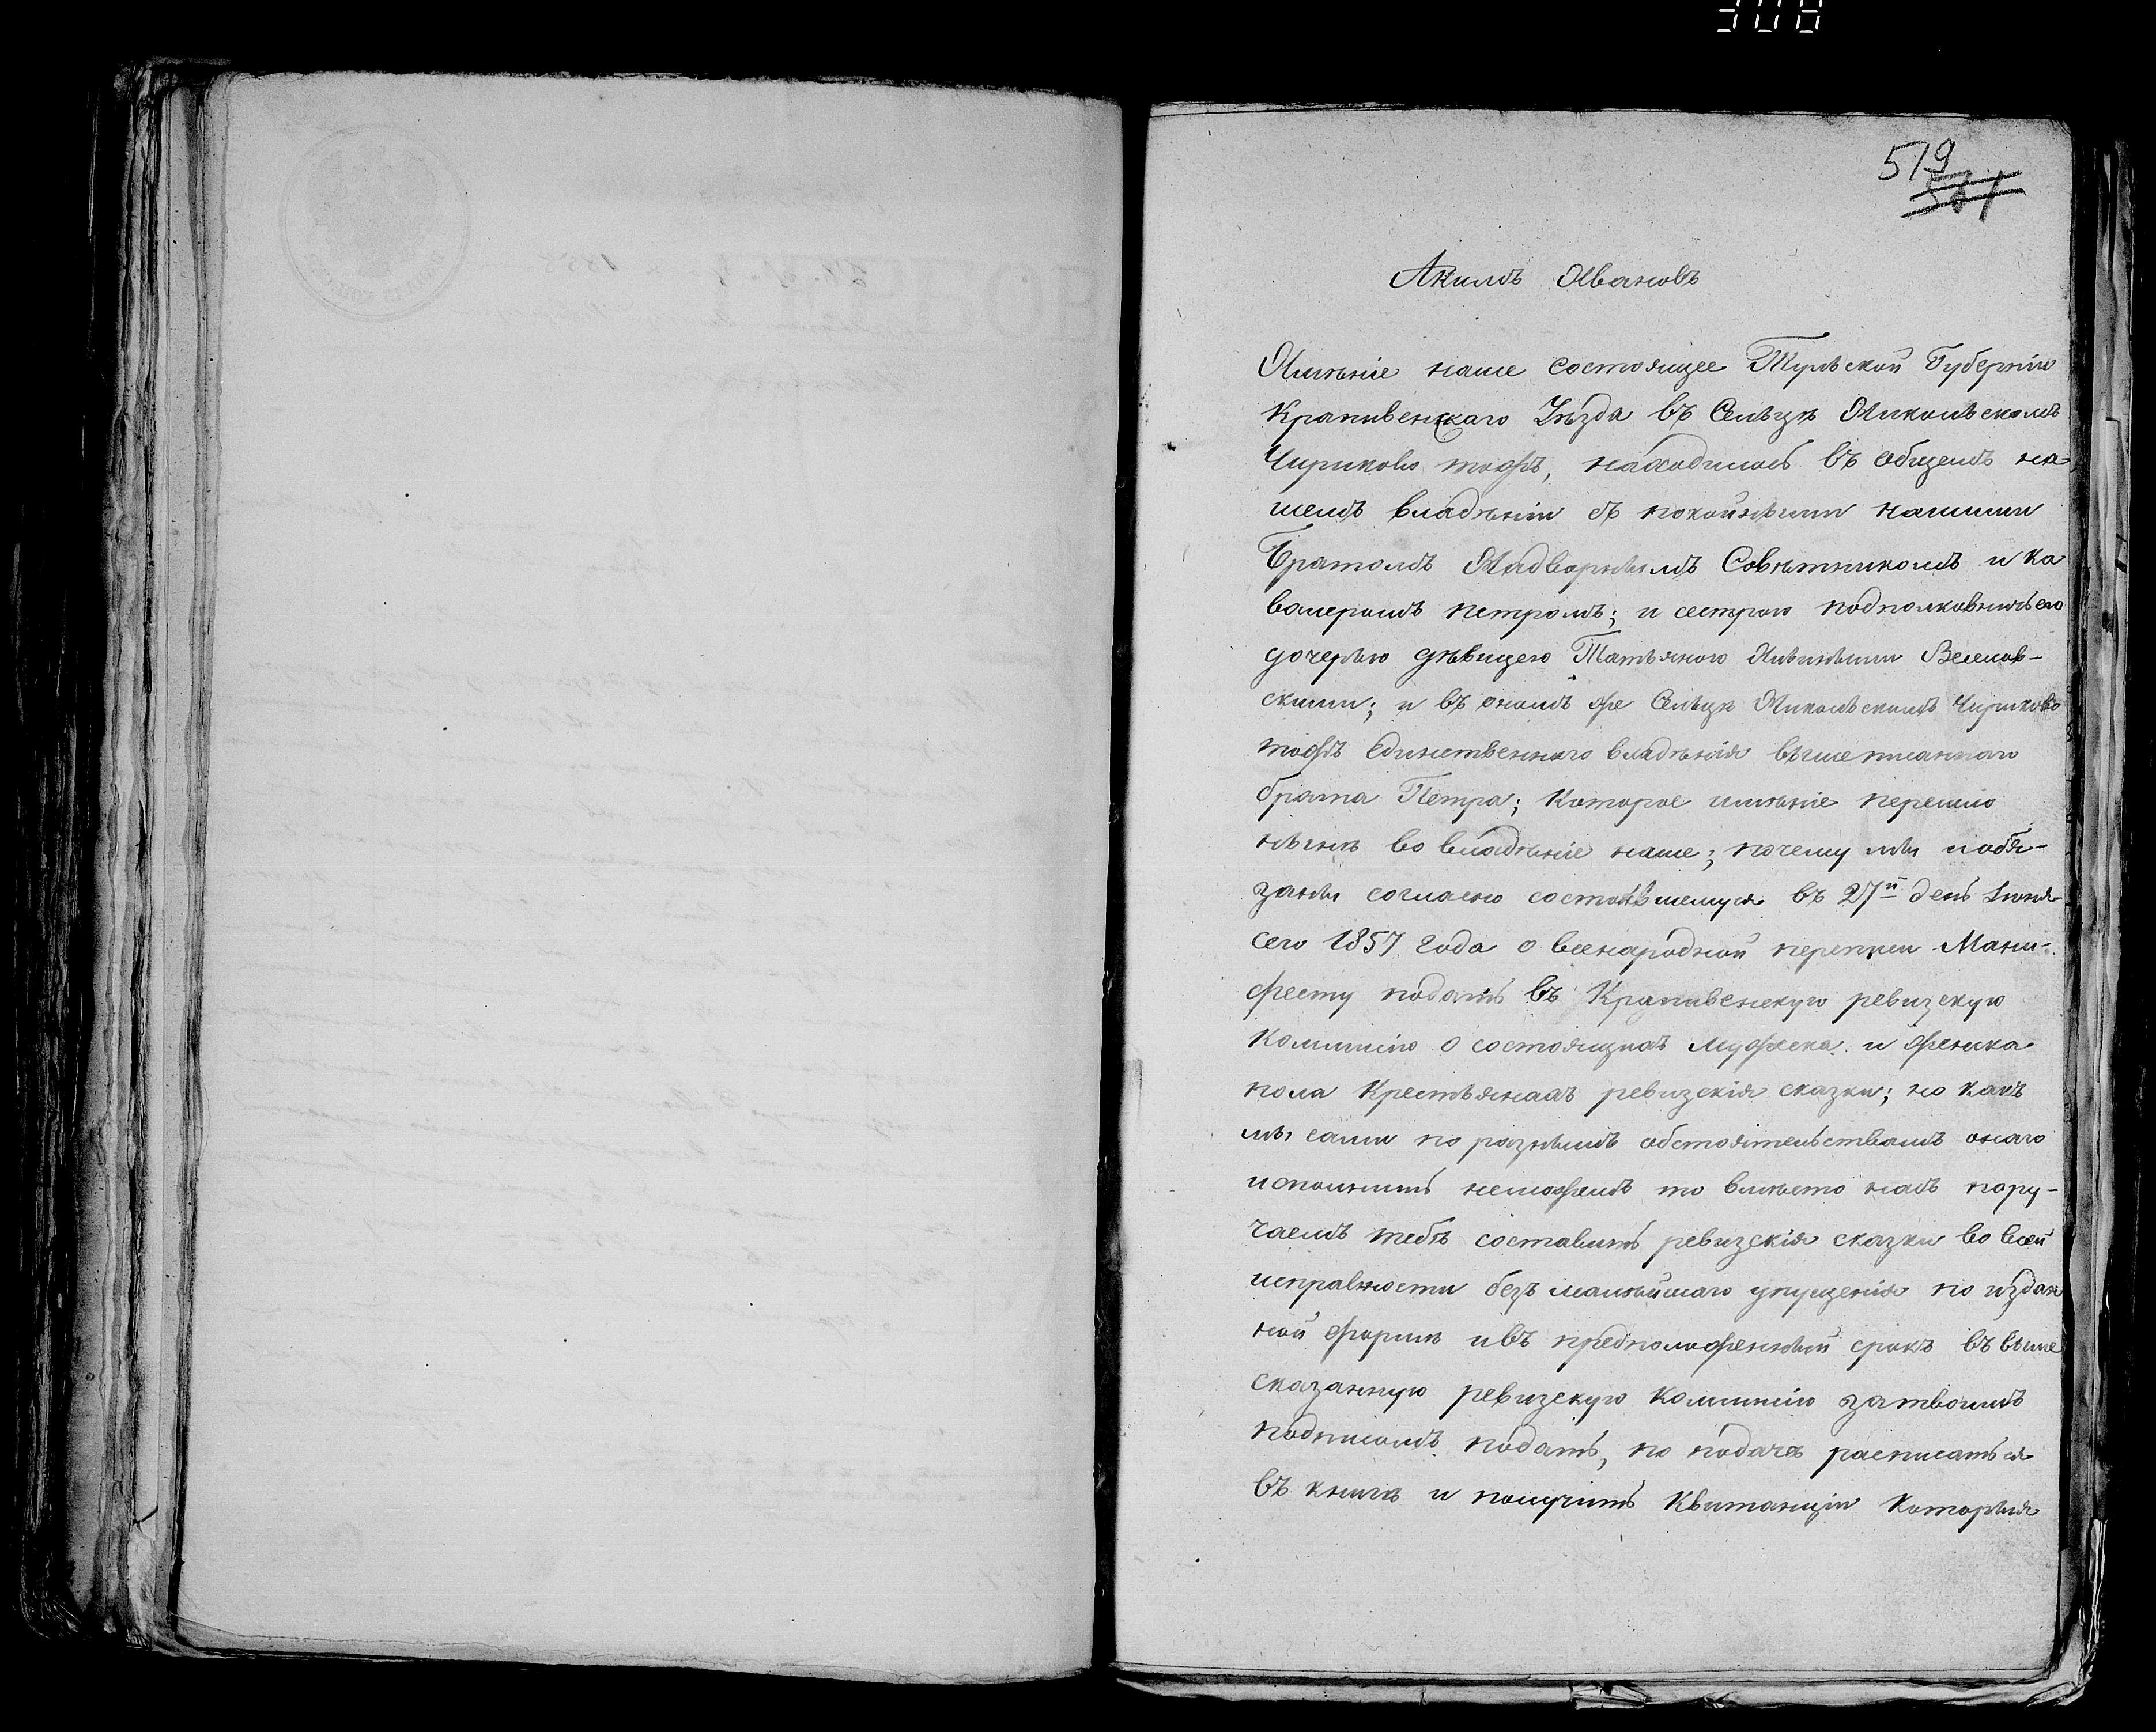 308
519
561
Акимъ Ивановъ
Имѣніе наше состоящее Тульской Губерніи
Крапивенскаго Уѣзда въ Сельцѣ Никольскомъ
Чириково тожъ, находилось въ общемъ на
шемъ владѣніи съ покойными нашими
Братомъ Надворнымъ Совѣтникомъ и Ка
валеромъ Петромъ; и сестрою подполковничьею
дочерью дѣвицею Татьяною Ивиными Веселов-
скими; и въ ономъ же Сельцѣ Никольскомъ Чириково
тожъ единственнаго владѣнія вышеписаннаго
брата Петра; которое имѣніе перешло
нынѣ во владѣніе наше; почему мы и обя-
заны согласно состоявшемуся въ 27й день Іюня
сего 1857 года о всенародной переписи Мани-
фесту подать въ Крапивенскую ревизскую
Коммисію о состоящихъ мужеска и женска
пола Крестьянахъ ревизскія сказки; но какъ
мы сами по разнымъ обстоятельствамъ онаго
исполнить неможемъ то вмѣсто насъ пору-
чаемъ тебѣ составить ревизскія сказки во всей
исправности безъ малѣйшаго упущенія по издан
ной формѣ и въ предположенный срокъ въ выше
сказанную ревизскую Коммисію за твоимъ
подписомъ подать, по подачѣ расписаться
въ книгѣ и получить Квитанціи которыя